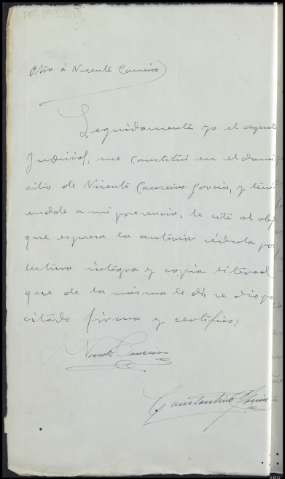 Otra á Vicente Carreiro
Seguidamente yo el agente
Judicial, me constituí en el domi
cilio de Vicente Carreiro García, y tení
endole a mi presencia, le cité al obj
que expresa la anterior cédula por
lectura íntegra y copia literal
que de la misma le dí se dió por
citado firma y certifico;
Vicente Carreiro
Constantino